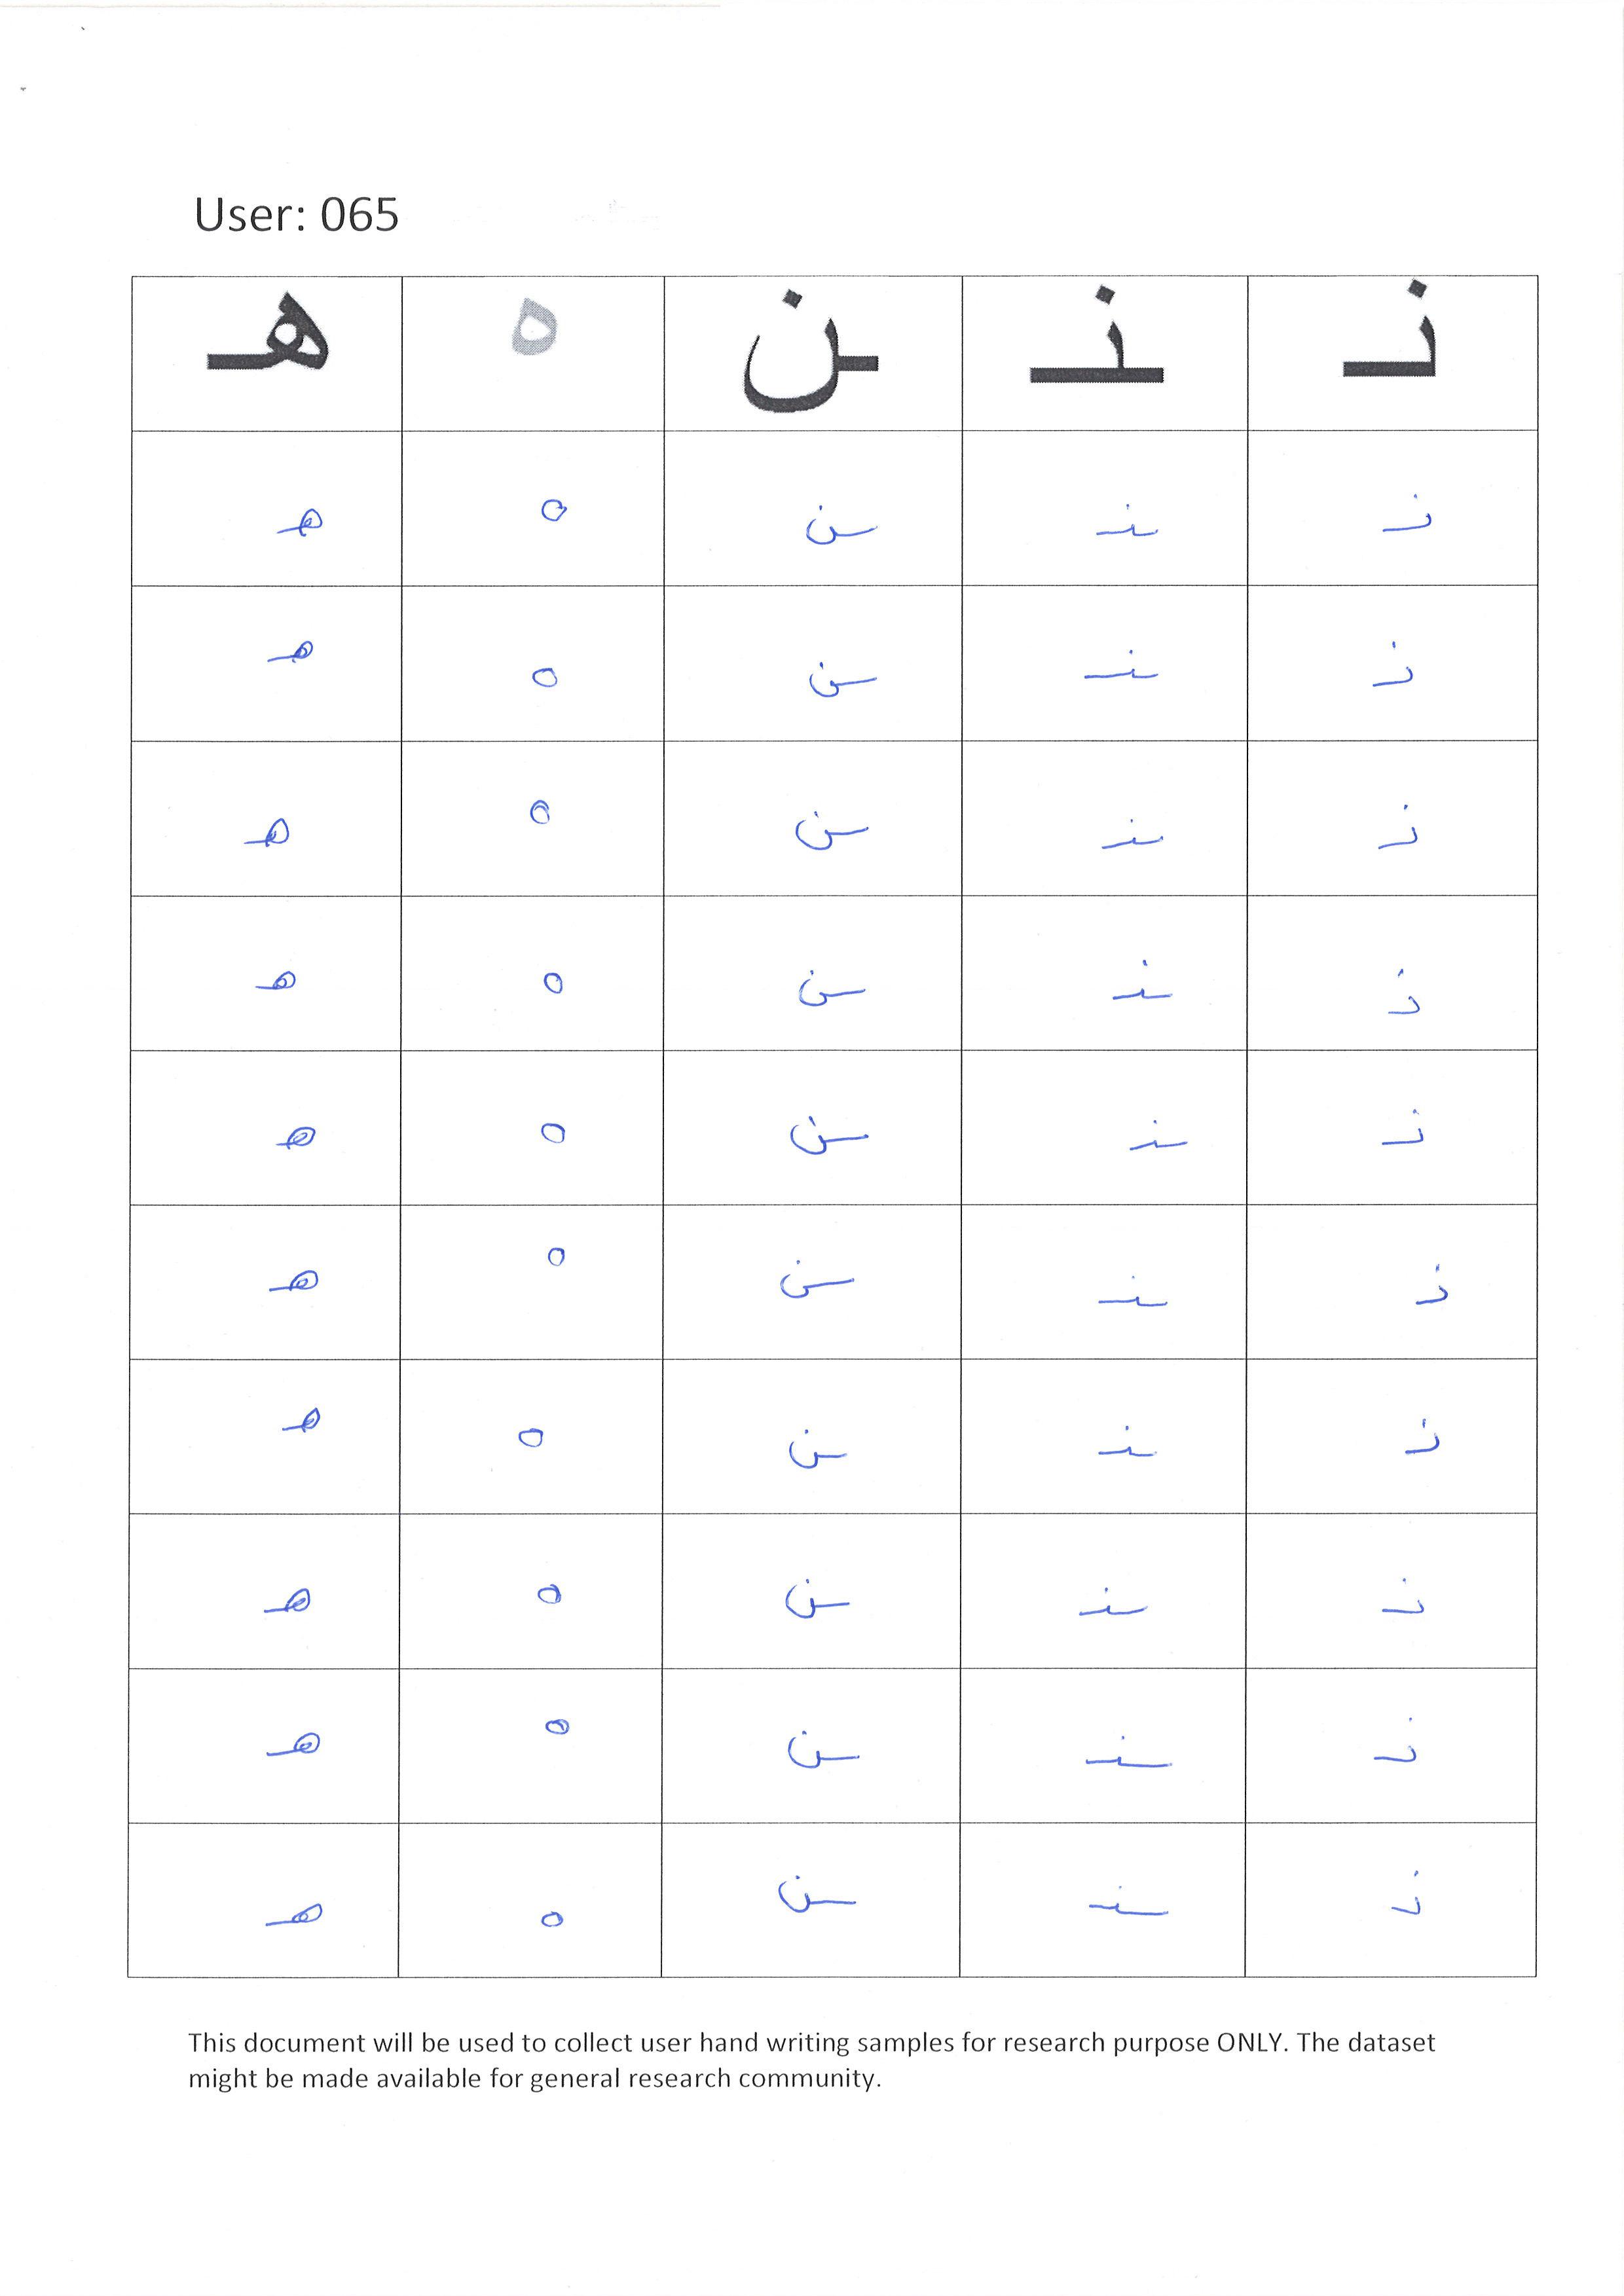 User: 065
نـ ـنـ ـن ه هـ
نـ ـنـ ـن ه هـ
نـ ـنـ ـن ه هـ
نـ ـنـ ـن ه هـ
نـ ـنـ ـن ه هـ
نـ ـنـ ـن ه هـ
نـ ـنـ ـن ه هـ
نـ ـنـ ـن ه هـ
نـ ـنـ ـن ه هـ
نـ ـنـ ـن ه هـ
نـ ـنـ ـن ه هـ
This document will be used to collect user hand writing samples for research purpose ONLY. The dataset
might be made available for general research community.